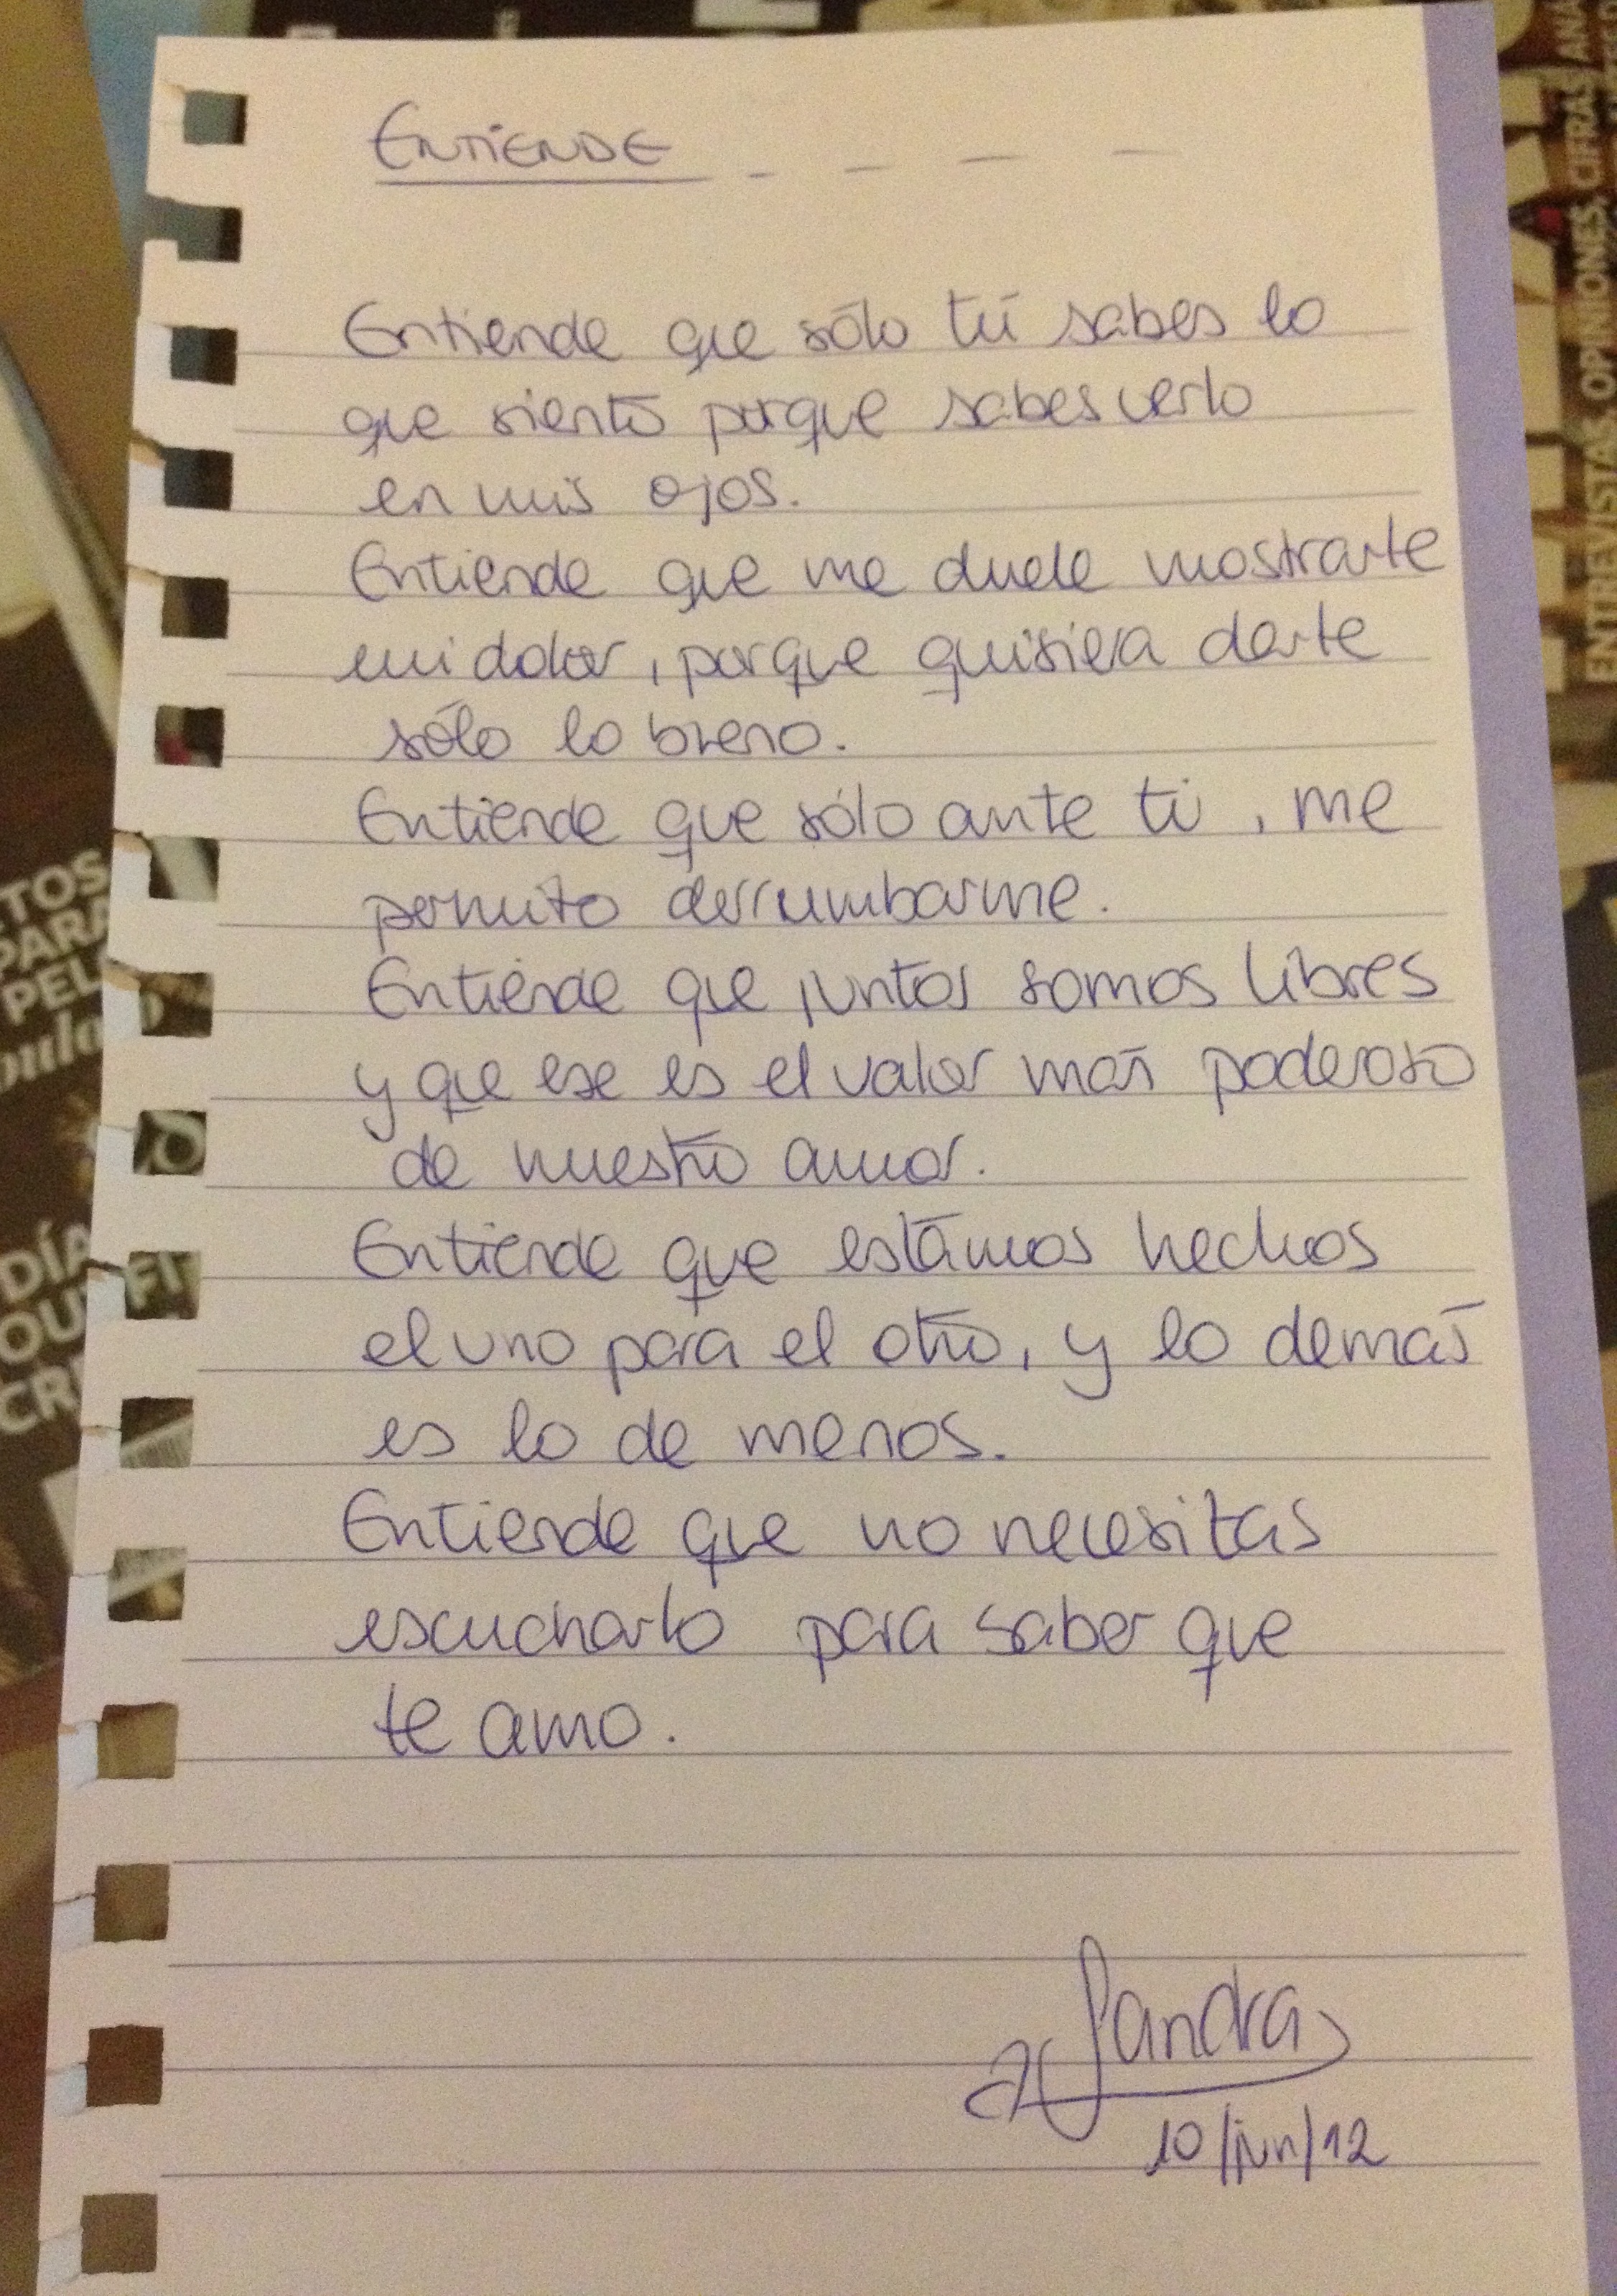 ENTIENDE _ _ _ _
Entiende que sólo tú sabes lo
que siento porque sabes verlo
en mis ojos.
Entiende que me duele mostrarte
mi dolor, porque quisiera darte
sólo lo bueno.
Entiende que sólo ante ti, me
permito derrumbarme.
Entiende que juntos somos libres
y que ese es el valor más poderoso
de nuestro amor.
Entiende que estámos hechos
el uno para el otro, y lo demás
es lo de menos.
Entiende que no necesitas
escucharlo para saber que
te amo.
Sandra
10/jun/12
ENTREVISTAS, OPINIONES, CIFRAS
TOS
PARA
PEL
DÍA
OU
CR
FI